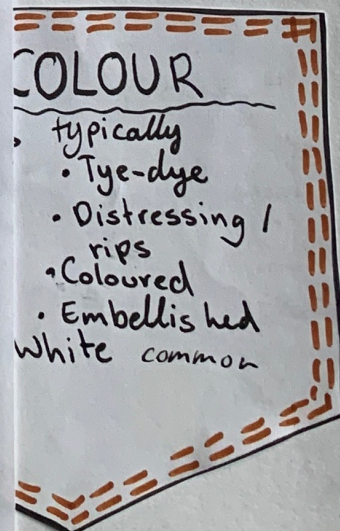 COLOUR
typically
• Tye-dye
• Distressing /
rips
• Coloured
• Embellished
White common